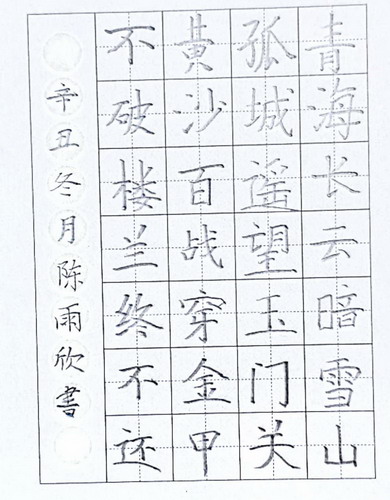 青海长云暗雪山
孤城遥望玉门关
黄沙百战穿金甲
不破楼兰终不还
辛丑冬月陈雨欣书